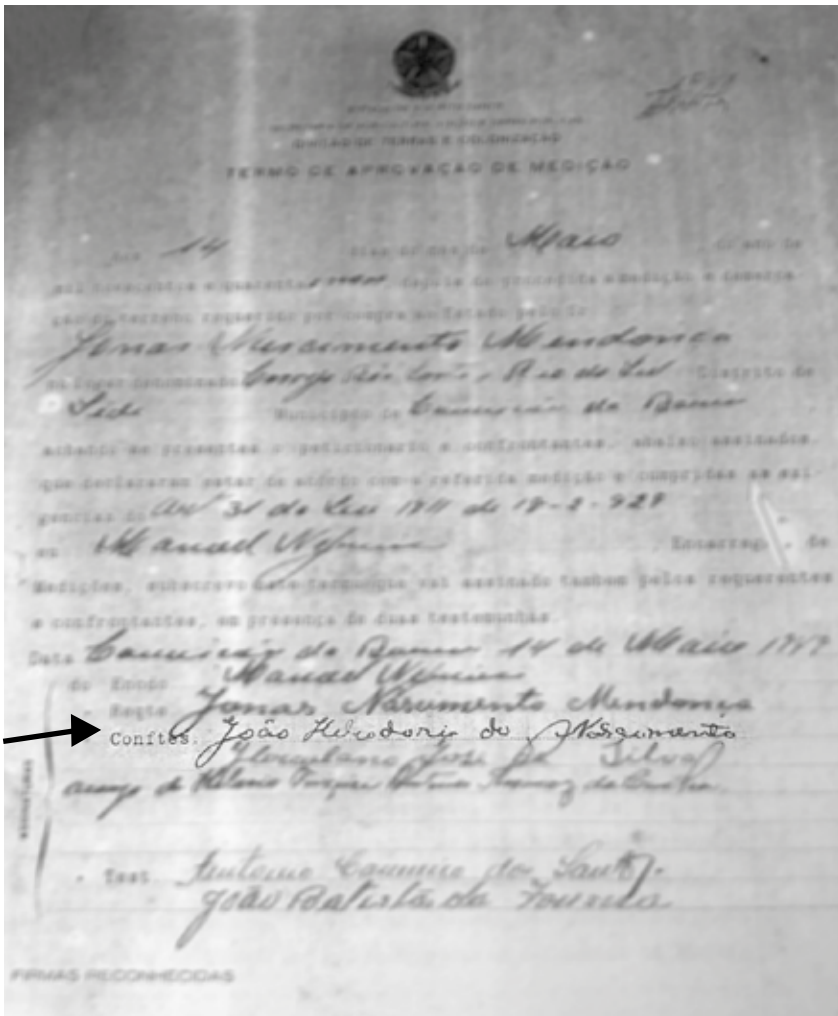 DIVISÃO DE TERRAS E COLONIZAÇÃO
TERMO DE APROVAÇÃO DE MEDIÇÃO
Aos 14 dias do mês de Maio do ano de
mil novecentos e quarenta e nove, depois de procedida a medição e demarca-
ção do terreno requerido por compra ao Estado pelo Sr.
Jonas Nascimento Mendonça
no lugar denominado Corrego Distrito de
Séde Municipio de Conceição da Barra
achando se presentes o peticionario e confrontantes, abaixo assinados,
que declararam estar de acôrdo com a referida medição e cumpridas as exi-
gencias do Art 31 da Lei 1711 de 18-2-929
eu Manoel Encarreg. de
Medições, subscrevo este termo que vai assinado tambem pelos requerentes
e confrontantes, em presença de duas testemunhas.
Data Conceição da Barra 14 de Maio 1949
Manoel
Reqte Jonas Nascimento Mendonça
Confttes. João Heliodorio do Nascimento
José da Silva
arrogo de
Test. Antonio dos Santos.
João Batista da Fonseca
FIRMAS RECONHECIDAS